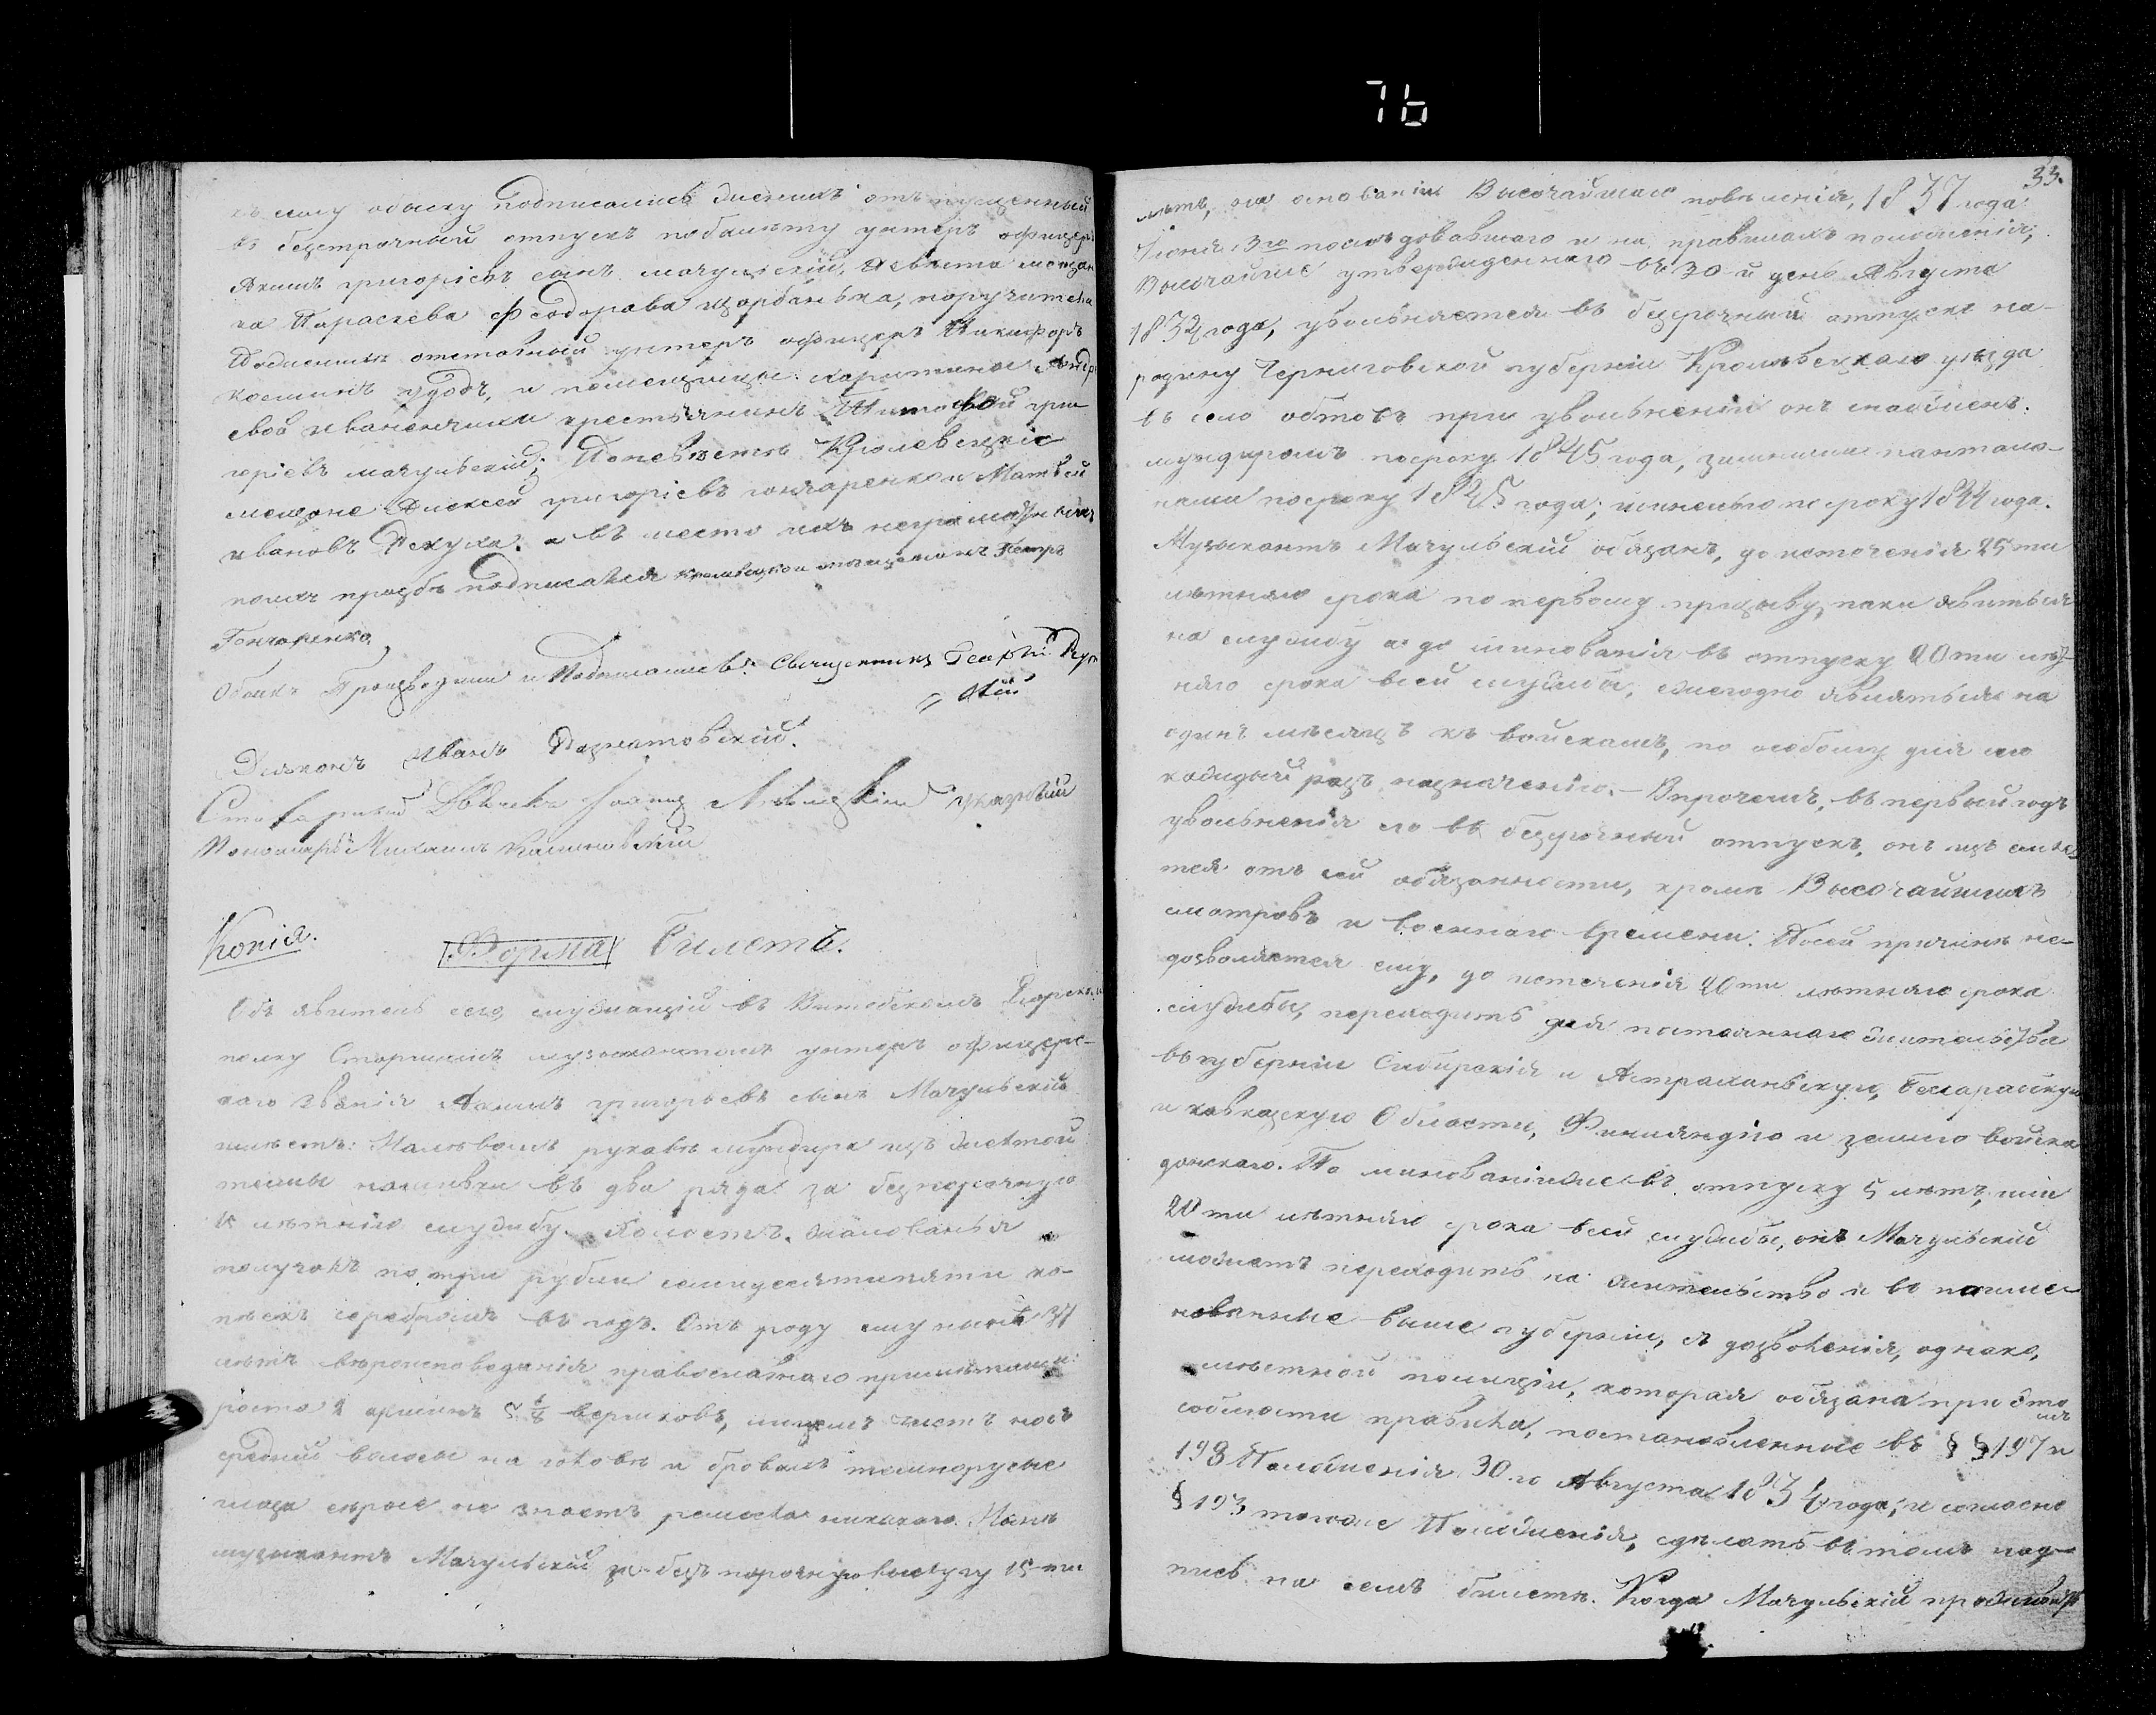 76
къ сему обыску подписались женихъ отпущенный
въ безсрочный отпускъ по билету унтеръ офицеръ
Акимъ григоріевъ сынъ мачульскій, невѣста мещан
ка Параскева Феодорова щербанька, поручители
По женихѣ отставный унтеръ офицеръ Никифоръ
козминъ удодъ, и помещицы харитины Андр
евой иваненчихи крестьянинъ Тимофей гри
горіевъ мачульскій; По невѣстѣ Кролевецкіе
мещане Алексей григоріевъ гончаренко и Матвѣй
ивановъ Рекуха. а въ место ихъ неграмотныхъ
по ихъ прозбѣ подписался кролевецкой мещанинъ Петръ
Гончаренко
Обыскъ Производили и Подписались: Священникъ Георгій
Діаконъ Иванъ
Дьячекъ Іоаннъ указный
Пономарь Михаилъ
Копія.
Форма Билетъ.
Объявитель сего, служащій въ Витебскомъ Егерском
полку Старшимъ музыкантомъ унтеръ офицерс-
каго званія Акимъ григорьевъ сынъ Мачульскій
имѣетъ: На лѣвомъ рукавѣ мундира изъ желтой
тесьмы нашивки въ два ряда за безпорочную
15 лѣтнюю службу. Холостъ. жалованья
получалъ по три рубли семидесятипяти ко-
пѣекъ серебромъ въ годъ. Отъ роду ему нынѣ 37
лѣтъ вѣроисповеданія православнаго примѣтами:
роста 2 аршинъ 5 1/8 вершковъ, лицемъ чистъ носъ
средній волосы на головѣ и бровахъ темнорусые
глаза серые не знаетъ ремесла никакаго. Нынѣ
музыкантъ Мачульскій за безъ порочную выслугу 15-ти
33.
лѣтъ, на основаніи Высочайшаго повѣленія, 1837 года
Іюня 3го послѣдовавшаго и на правилахъ положенія,
Высочайше утвержденнаго въ 30 й день Августа
1834 года, увольняется въ безсрочный отпускъ на-
родину Черниговской губерніи Кролевецкаго уѣзда
въ село обтовъ при увольненіи онъ снабженъ:
мундиромъ по сроку 1845 года, зимними пантало-
нами по сроку 1845 года; шинелью по сроку 1844 года.
Музыкантъ Мачульскій обязанъ, до истеченія 25 ти
лѣтняго срока по первому призыву, паки явиться
на службу а до минованія въ отпуску 20 ти лѣт-
няго срока всей службы, ежегодно являться на
одинъ мѣсяцъ къ войскамъ, по особому для его
каждый разъ назначенію. — Впрочемъ, въ первый годъ
увольненія его въ безсрочный отпускъ, онъ
тся отъ сей обязанности, кромѣ Высочайшихъ
смотровъ и военнаго времени. По сей причинѣ не-
дозволяется ему, до истеченія 20 ти лѣтняго срока
службы, переходить для постояннаго жительства
въ губерніи Сибирскія и Астраханьскую, Бесарабскую
и кавказскую Области, Финляндію и землю войска
донскаго. По минованіи же въ отпуску 5 лѣтъ, или
20 ти лѣтняго срока всей службы, онъ Мачульскій
можетъ переходить на жительство и въ поиме-
нованные выше губерніи, съ дозволенія, однако,
мѣстной полиціи, которая обязана при этомъ
соблюсти правила, постановленные въ § § 197 и
198 Положенія 30 го Августа 1834 года; и согласно
§ 193 того же Положенія, сдѣлать въ томъ над-
пись на семъ билетѣ. Когда Мачульскій